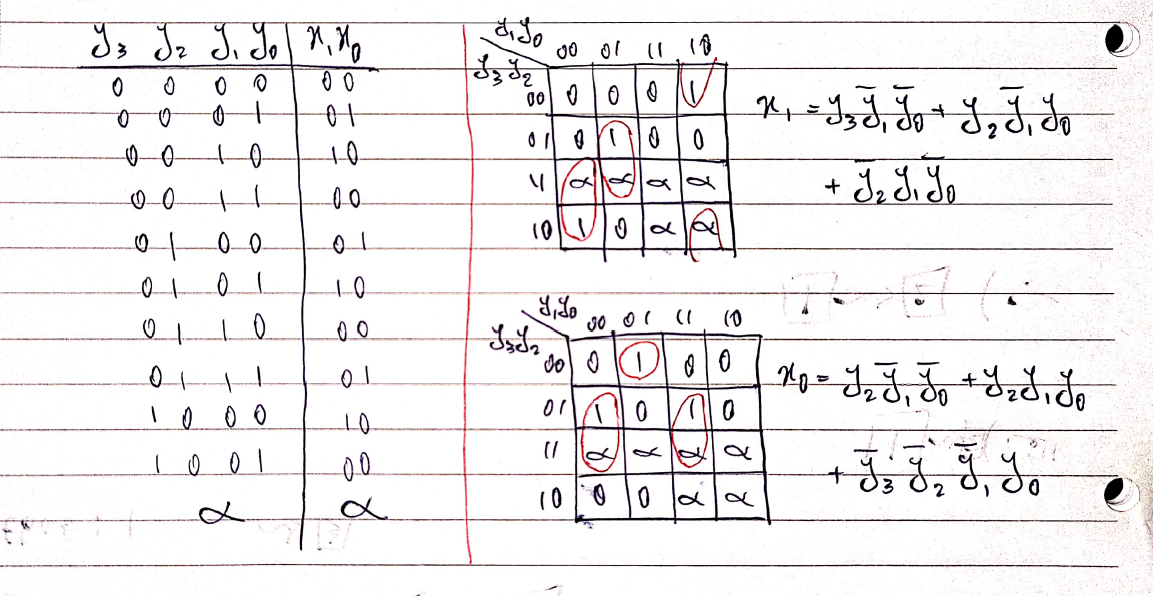 y₃ y₂ y₁ y₀ | x₁ x₀
0 0 0 0 | 0 0
0 0 0 1 | 0 1
0 0 1 0 | 1 0
0 0 1 1 | 0 0
0 1 0 0 | 0 1
0 1 0 1 | 1 0
0 1 1 0 | 0 0
0 1 1 1 | 0 1
1 0 0 0 | 1 0
1 0 0 1 | 0 0
α | α
y₁y₀
y₃y₂ 00 01 11 10
00 0 0 0 1
01 0 1 0 0
11 α α α α
10 1 0 α α
x₁ = y₃ȳ₁ȳ₀ + y₂ȳ₁y₀
+ ȳ₂y₁ȳ₀
y₁y₀
y₃y₂ 00 01 11 10
00 0 1 0 0
01 1 0 1 0
11 α α α α
10 0 0 α α
x₀ = y₂ȳ₁ȳ₀ + y₂y₁y₀
+ ȳ₃ȳ₂ȳ₁y₀